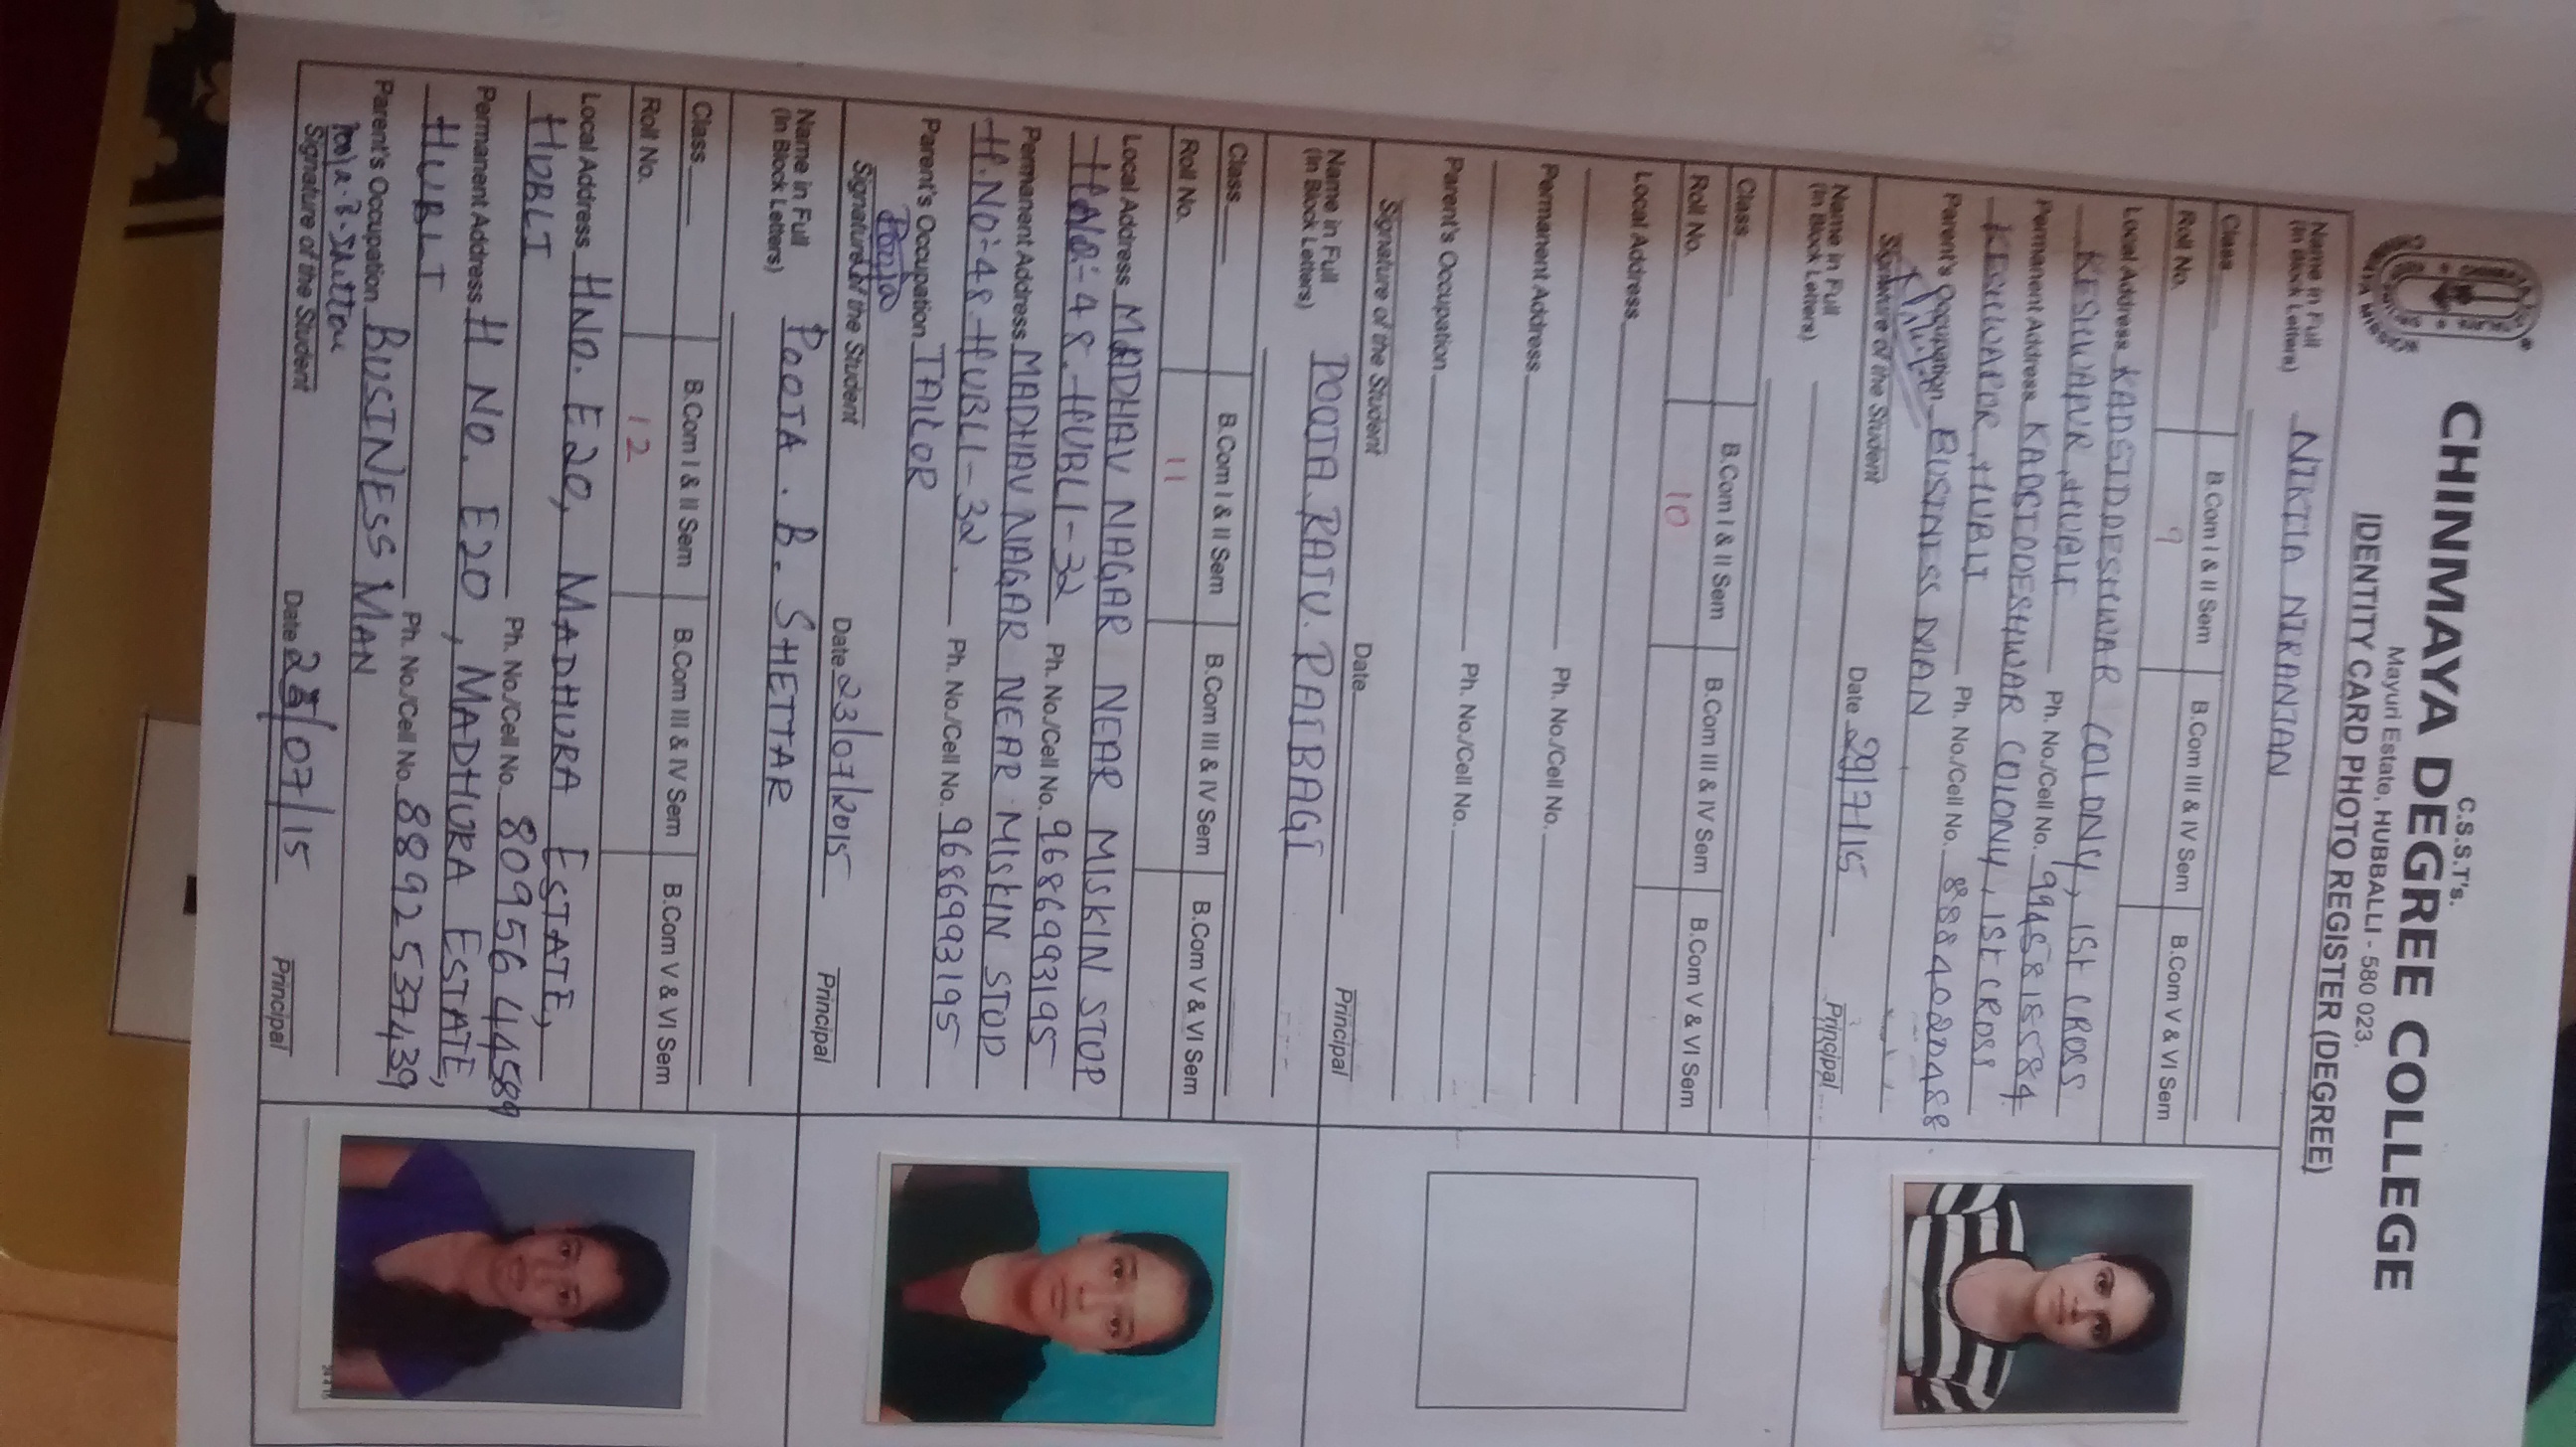 C.S.S.T's.
CHINMAYA DEGREE COLLEGE
Mayuri Estate, HUBBALLI - 580 023.
IDENTITY CARD PHOTO REGISTER (DEGREE)
Name in Full NIKITA NIRANJAN
(In Block Letters)
Class B.Com I & II Sem B.Com III & IV Sem B.Com V & VI Sem
Roll No. 9
Local Address KADSIDDESHWAR COLONY, 1st CROSS
KESHWAPUR, HUBLI Ph. No./Cell No.
Permanent Address KADSIDDESHWAR COLONY, 1st CROSS
KESHWAPUR, HUBLI Ph. No./Cell No.
Parent's Occupation BUSINESS MAN
Signature of the Student Date 29/7/15 Principal
Name in Full
(In Block Letters)
Class B.Com I & II Sem B.Com III & IV Sem B.Com V & VI Sem
Roll No. 10
Local Address
Ph. No./Cell No.
Permanent Address
Ph. No./Cell No.
Parent's Occupation
Signature of the Student Date Principal
Name in Full POOJA. RAJU. RAIBAGI
(In Block Letters)
Class B.Com I & II Sem B.Com III & IV Sem B.Com V & VI Sem
Roll No. 11
Local Address MADHAV NAGAR NEAR MISKIN STOP
H.NO:-48. HUBLI-32 Ph. No./Cell No. 9686993195
Permanent Address MADHAV NAGAR NEAR MISKIN STOP
H.NO:-48 HUBLI-32. Ph. No./Cell No. 9686993195
Parent's Occupation TAILOR
Pooja
Signature of the Student Date 23/07/2015 Principal
Name in Full POOJA. B. SHETTAR
(In Block Letters)
Class B.Com I & II Sem B.Com III & IV Sem B.Com V & VI Sem
Roll No. 12
Local Address HNO. E20, MADHURA ESTATE,
HUBLI Ph. No./Cell No. 8095644589
Permanent Address H NO. E20, MADHURA ESTATE,
HUBLI Ph. No./Cell No. 8892537439
Parent's Occupation BUSINESS MAN
Pooja.B.Shettar
Signature of the Student Date /07/15 Principal